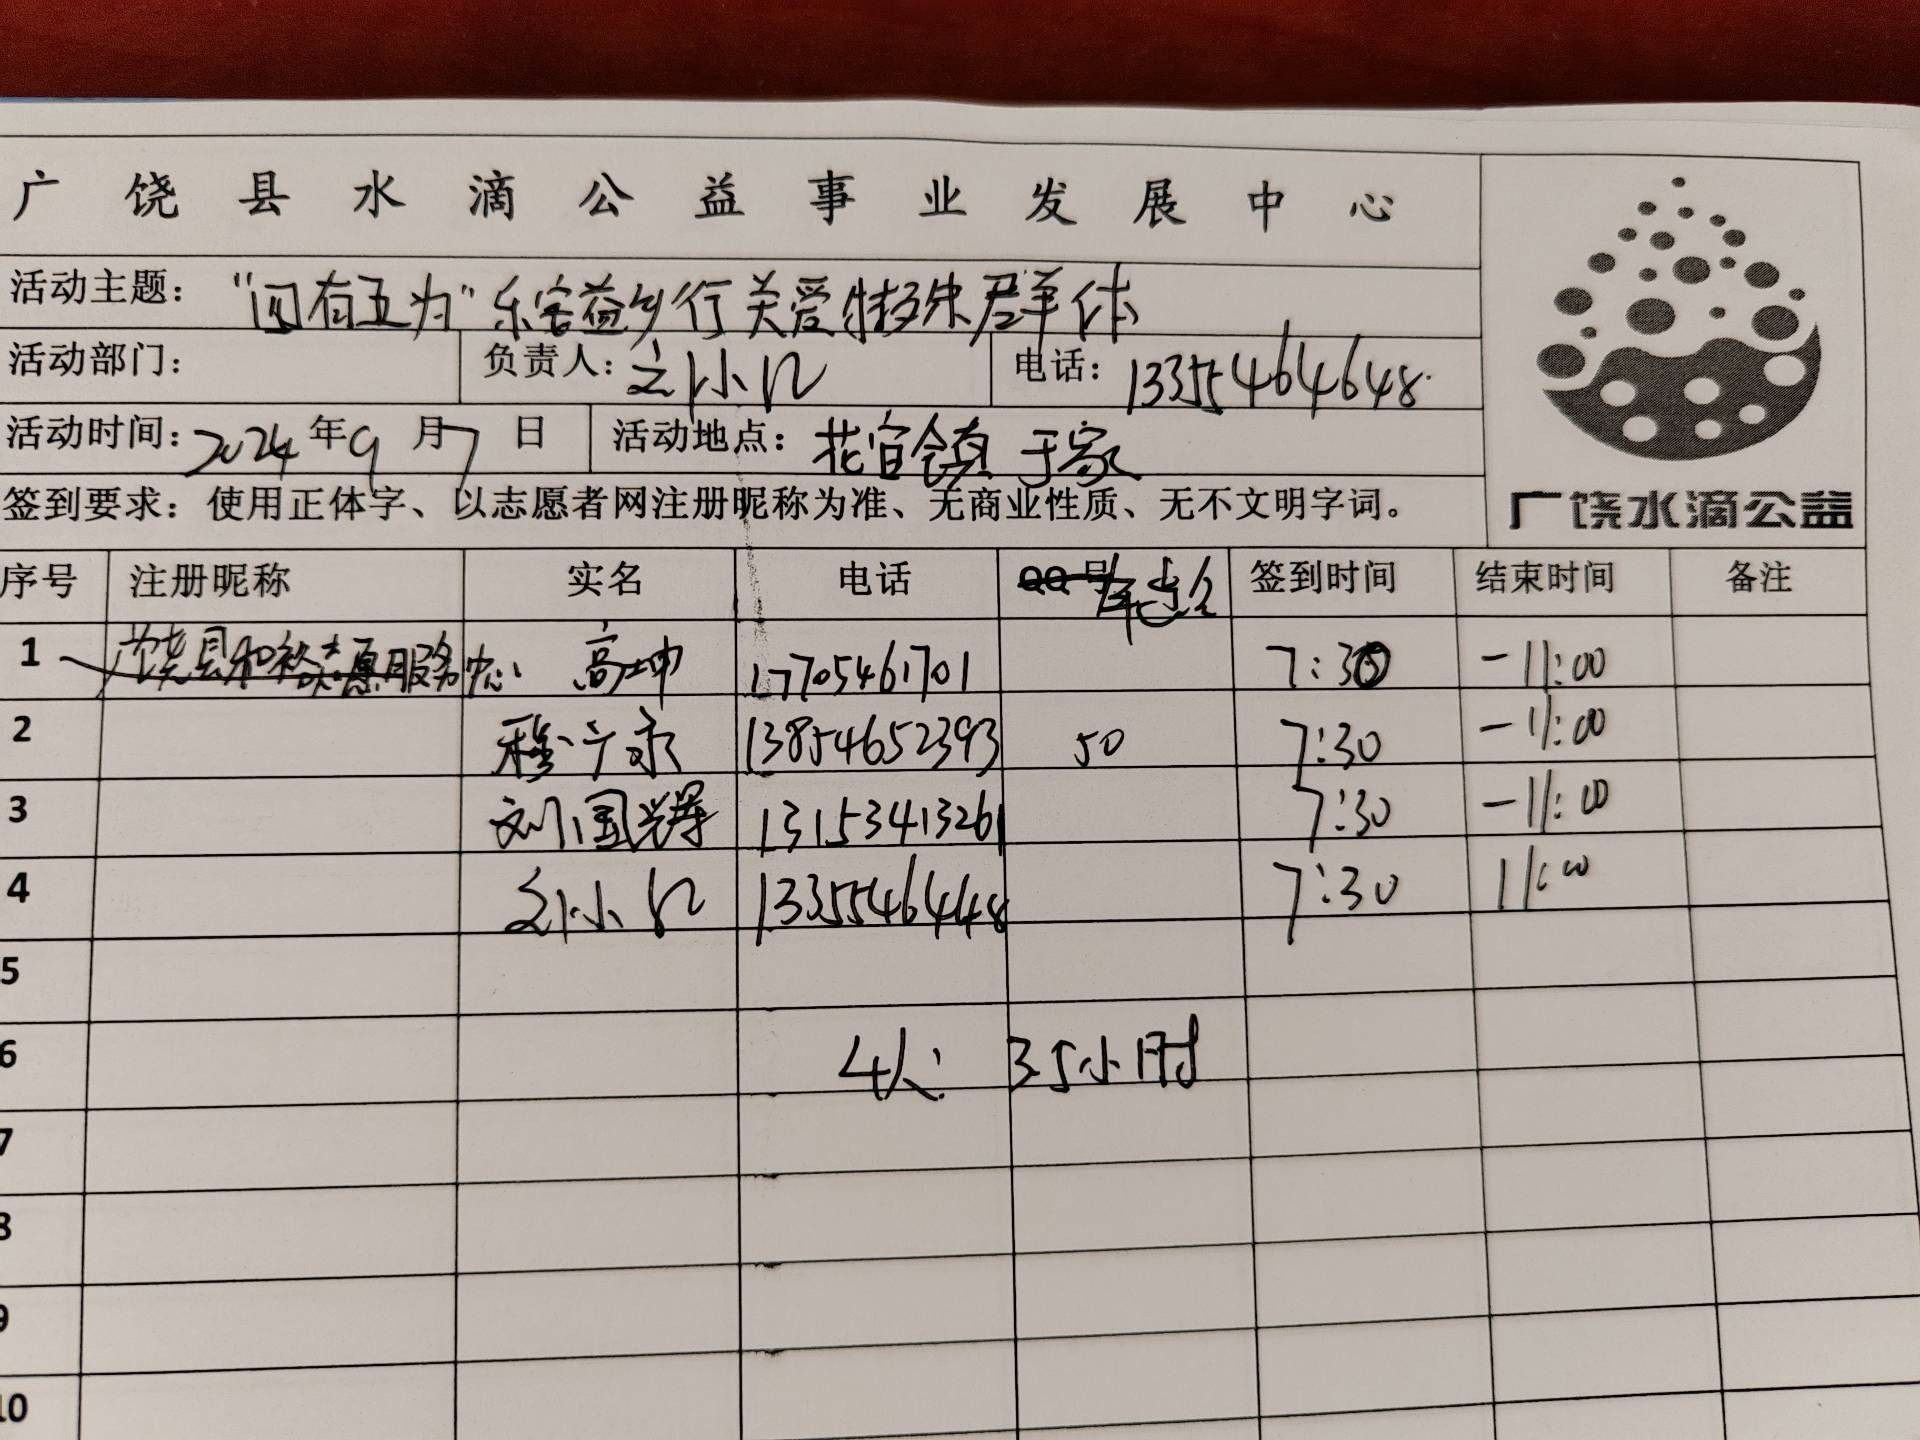 广饶县水滴公益事业发展中心
活动主题： “四有五为”乐客益乡行关爱特殊群体
活动部门： 负责人： 刘小 电话： 13355464648
活动时间： 2024年9月7日 活动地点： 花官镇 于家
签到要求：使用正体字、以志愿者网注册昵称为准、无商业性质、无不文明字词。
广饶水滴公益
序号 注册昵称 实名 电话 QQ号 签到时间 结束时间 备注
1 广饶县和裕志愿服务中心 高坤 17705461701 7:30 -11:00
2 程广永 13854652393 50 7:30 -11:00
3 刘国辉 13153413261 7:30 -11:00
4 刘小 7:30 11:00
5
6 4人 35小时
7
8
9
10